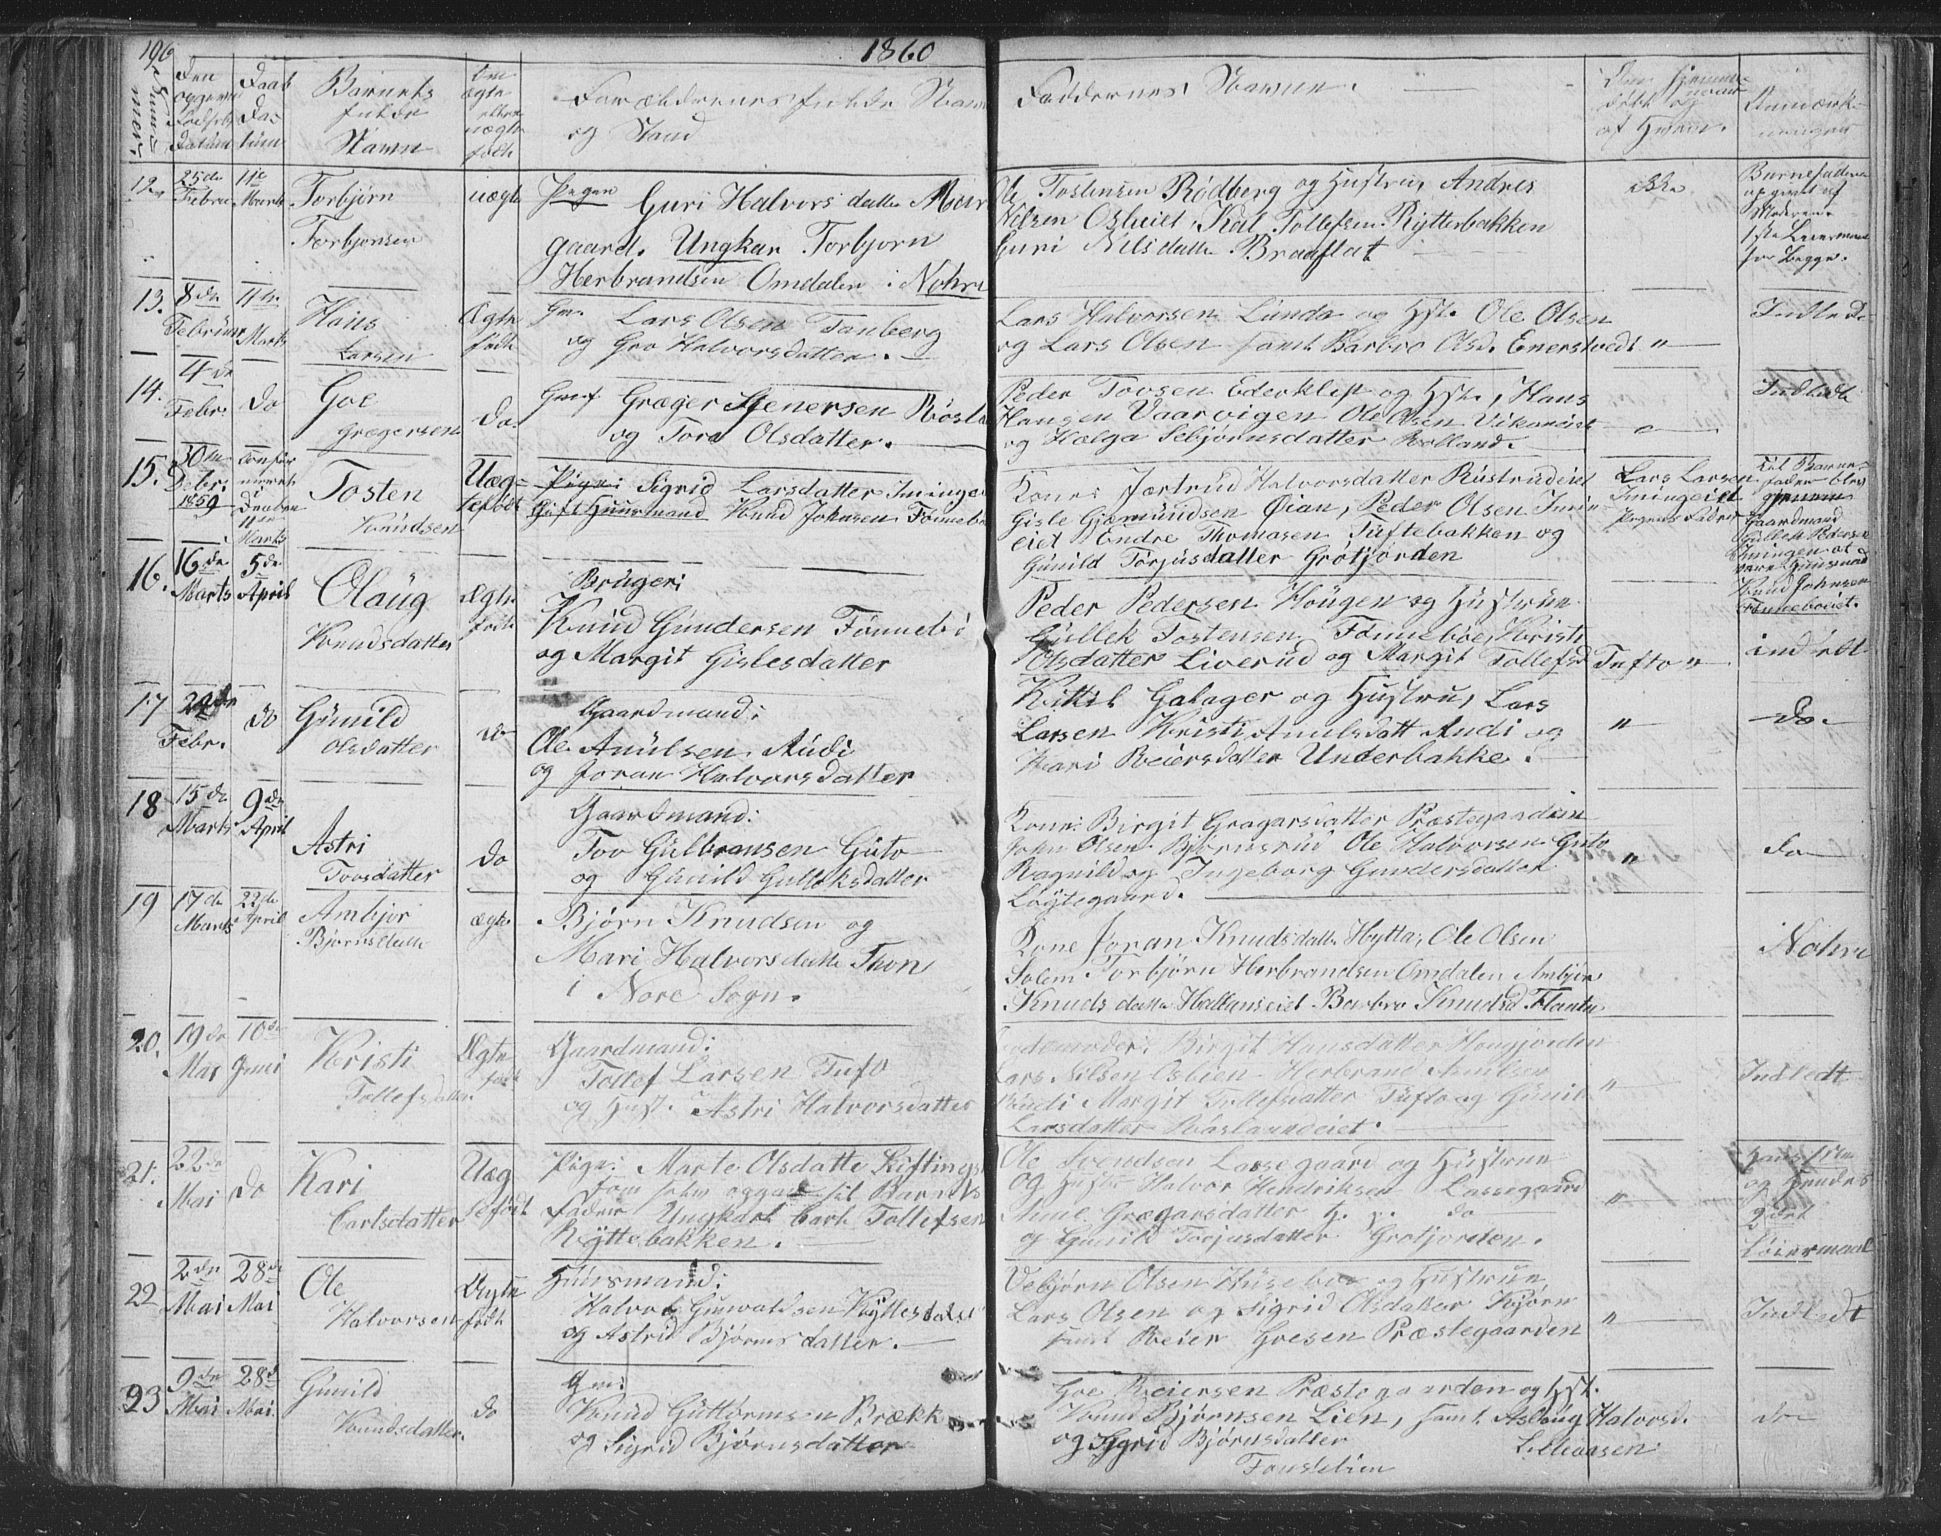 196
1860
Numer
Den opgivne Fødsels Datum
Daab Datum
Barnets fulde Navn
Om ægte eller uægte født
Forældrenes fulde Navn og Stand
Faddernes Navne.
Anmærk-
12. 25de Febru 11te Marts Torbjørn Torbjønsen uægte
Pigen Guri Halvorsdatte Moir
gaard. Ungkar Torbjorn
Herbrandsen Omdalen i Nohre
Ole Tostensen Rødberg og Hustru, Andres
Nilsen Oslieiet, Kal Tollefsen Rytterbakken
Guri Nilsdatte Braaflat
Barnefaderen
opgivet af
Moderen
1ste Leiermaal
for Begge.
13. 8de Februar 11te Marts Hans Larsen Ægte født
Gm. Lars Olsen Tanberg
og Gro Halvorsdatter.
Lars Halvorsen Lunda og Hst. Ole Olsen
og Lars Olsen samt Barbro Olsd. Enerstvedt "
14. 4de Febr. Do Goe Gregersen Do
Græger Stenersen Røsla
og Tora Olsdatter.
Peder Tovsen Ederklep og Hst., Hans
Hansen Vaarvigen Ole Olsen Vikaneiet
og Hælga Sebjørnsdatter Rolland.
Indledt
15. 30te Debr. 1859 11te Marts Tosten Knudsen Uægtefødt
Pige: Sigrid Larsdatter Iminge
Gift Huusmand Knud Johnsen Fønneb
Kone: Jørtrud Halvorsdatter Rustrudeiet
Gisle Gjæmundsen Øian, Peder Olsen Imin
eiet Endre Thomasen Tuftebakken og
Gunild Torjusdatter Grotjorden
Lars Larsen
Imingeiet
Pigens Fader
Til Barne-
fader blev
Gaardmand
Gullek Pedersen
Imingen at
være Huusmand
Knud Johnsen
16. 16de Marts 5de April Olaug Knudsdatter Ægte født
Bruger:
Knud Gundersen Fønneb
og Margit Gislesdatter
Peder Pedersen Hougen og Hustrue
Gullek Tostensen Fønnebøe, Kristi
Olsdatter Liverud og Margit Tollefsd Tufto "
indledt
17 Febr. do Gunild Olsdatter do
Gaardmand:
Ole Anulsen Rudi
og Joran Halvorsdatter
Kittil Galager og Hustru, Lars
Larsen Kristi Anulsdatt Rudi og
Kari Reiersdatter Underbakke.
"
do
18 15de Marts 9de April Astri Tovsdatter do
Gaardmand:
Tov Gulbransen Guto
og Gunild Gulleksdatter
Kone: Birgit Gragarsdatter Præstegaarden
John Olsen Bjørnsrud Ole Halvorsen Guto
Ragnild og Ingeborg Gundersdatter
Løytegaard.
"
do
19 17de Marts 22de April Ambjør Bjørnsdatte ægte
Bjørn Knudsen og
Mari Halvorsdatte Thon
i Nore Sogn.
Kone Joran Knudsdatte Hytta, Ole Olsen
Solem Torbjørn Herbrandsen Omdalen Ambjør
Knudsdatte Hallanseiet Barbro Knudsd Flanta
Nohre
20. 19de Mai 10de Junei Kristi Tollefsdatter Ægte født
Gaardmand:
Tollef Larsen Tufo
og Hust. Astri Halvorsdatter
Gudmoder: Birgit Hansdatter Hougjorden
Lars Nilsen Oslien Herbrand Anulsen
Rudi Margit Tollefsdatter Tufte og Gunil
Larsdatter Raslaundeiet.
"
Indledt
21. 22de Mai do Kari Carlsdatter Uægtefødt
Pige: Marte Olsdatte Kiftings
som opgav til Barnets
Fader Ungkarl Carl Tollefsen
Ryttebakken.
Ole Svendsen Lassegaard og Hustrue
og Halvor Hendriksen Lassegaard
Anne Gregarsdatter do
og Gunild Torjusdatter Grotjorden.
"
og Hendes
2det
Leiermaal
22 2den Mai 28de Mai Ole Halvorsen Ægte født
Huusmand:
Halvor Gunvaldsen Kyllesdale
og Astrid Bjørnsdatter.
Vebjørn Olsen Huseboe og Hustrue,
Lars Olsen og Sigrid Olsdatter Kjørn
samt Reier Goesen Præstegaarden
"
Indledt
23 9de Mai 28d Mai. Gunild Knudsdatter. do
Gm:
Knud Guttormsen Brække
og Sigrid Bjørnsdatter
Goe Reiersen Præstegaarden og Hst.
Knud Bjørnsen Lien, samt Aslaug Halvorsd.
og Sygrid Bjørnsdatter
do